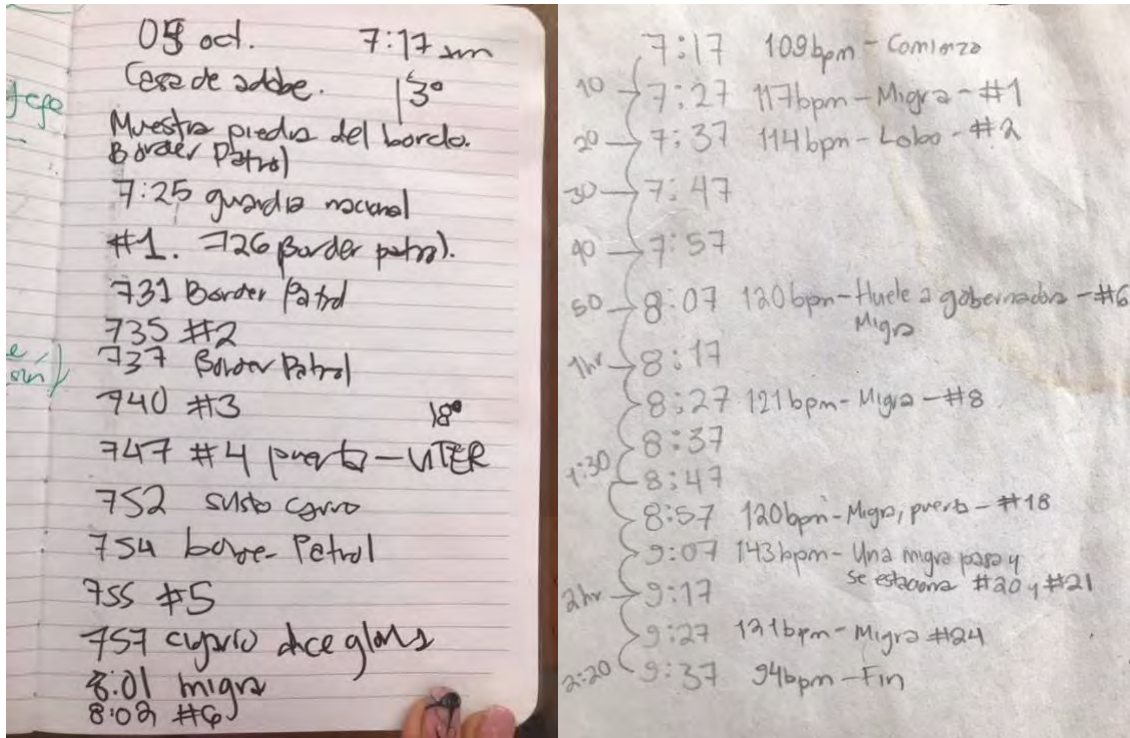 05 oct. 7:17 am
Casa de adobe. 13°
Muestra piedra del bordo.
Border Patrol
7:25 guardia nacional
#1. 726 Border patrol.
731 Border Patrol
735 #2
737 Border Patrol
740 #3 18°
747 #4 puerta - VITER
752 susto carro
754 borde Patrol
755 #5
757 carro dice
8:01 migra
8:02 #6
7:17 109bpm - Comienzo
10 7:27 117bpm - Migra - #1
20 7:37 114bpm - Lobo - #2
30 7:47
40 7:57
50 8:07 120bpm - Huele a gobernadora - #6
Migra
1hr 8:17
8:27 121bpm - Migra - #8
8:37
1:30 8:47
8:57 120bpm - Migra, puerta - #18
9:07 143bpm - Una migra pasa y
se estaciona #20 y #21
2hr 9:17
9:27 121bpm - Migra #24
2:20 9:37 94bpm - Fin